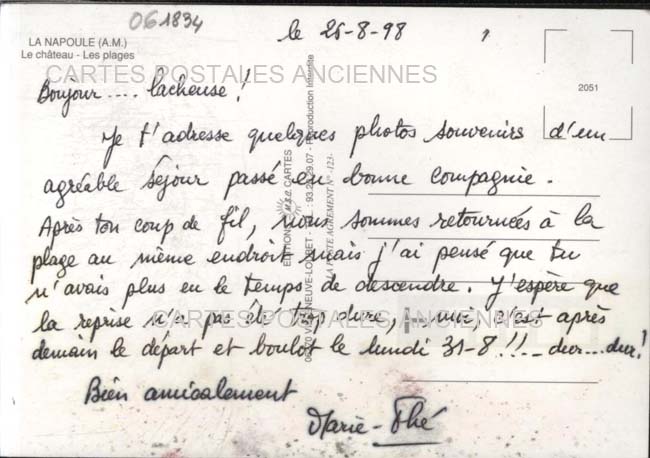 061834
LA NAPOULE (A.M.)
Le château - Les plages
le 26-8-98
2051
CARTES POSTALES ANCIENNES
Bonjour .... lacheuse !
Je t'adresse quelques photos souvenirs d'un
agréable séjour passé en bonne compagnie.
Après ton coup de fil, nous sommes retournées à la
plage au même endroit mais j'ai pensé que tu
n'avais plus eu le temps de descendre. J'espère que
la reprise n'a pas été trop dure, moi c'est après
demain le départ et boulot le lundi 31-8 !!... dur...dur!
CARTES POSTALES ANCIENNES
Bien amicalement
Marie-Thé
EDITIONS M.S.G. CARTES
VILLENEUVE-LOUBET - Reproduction interdite
LA POSTE AGREMENT N° -123-